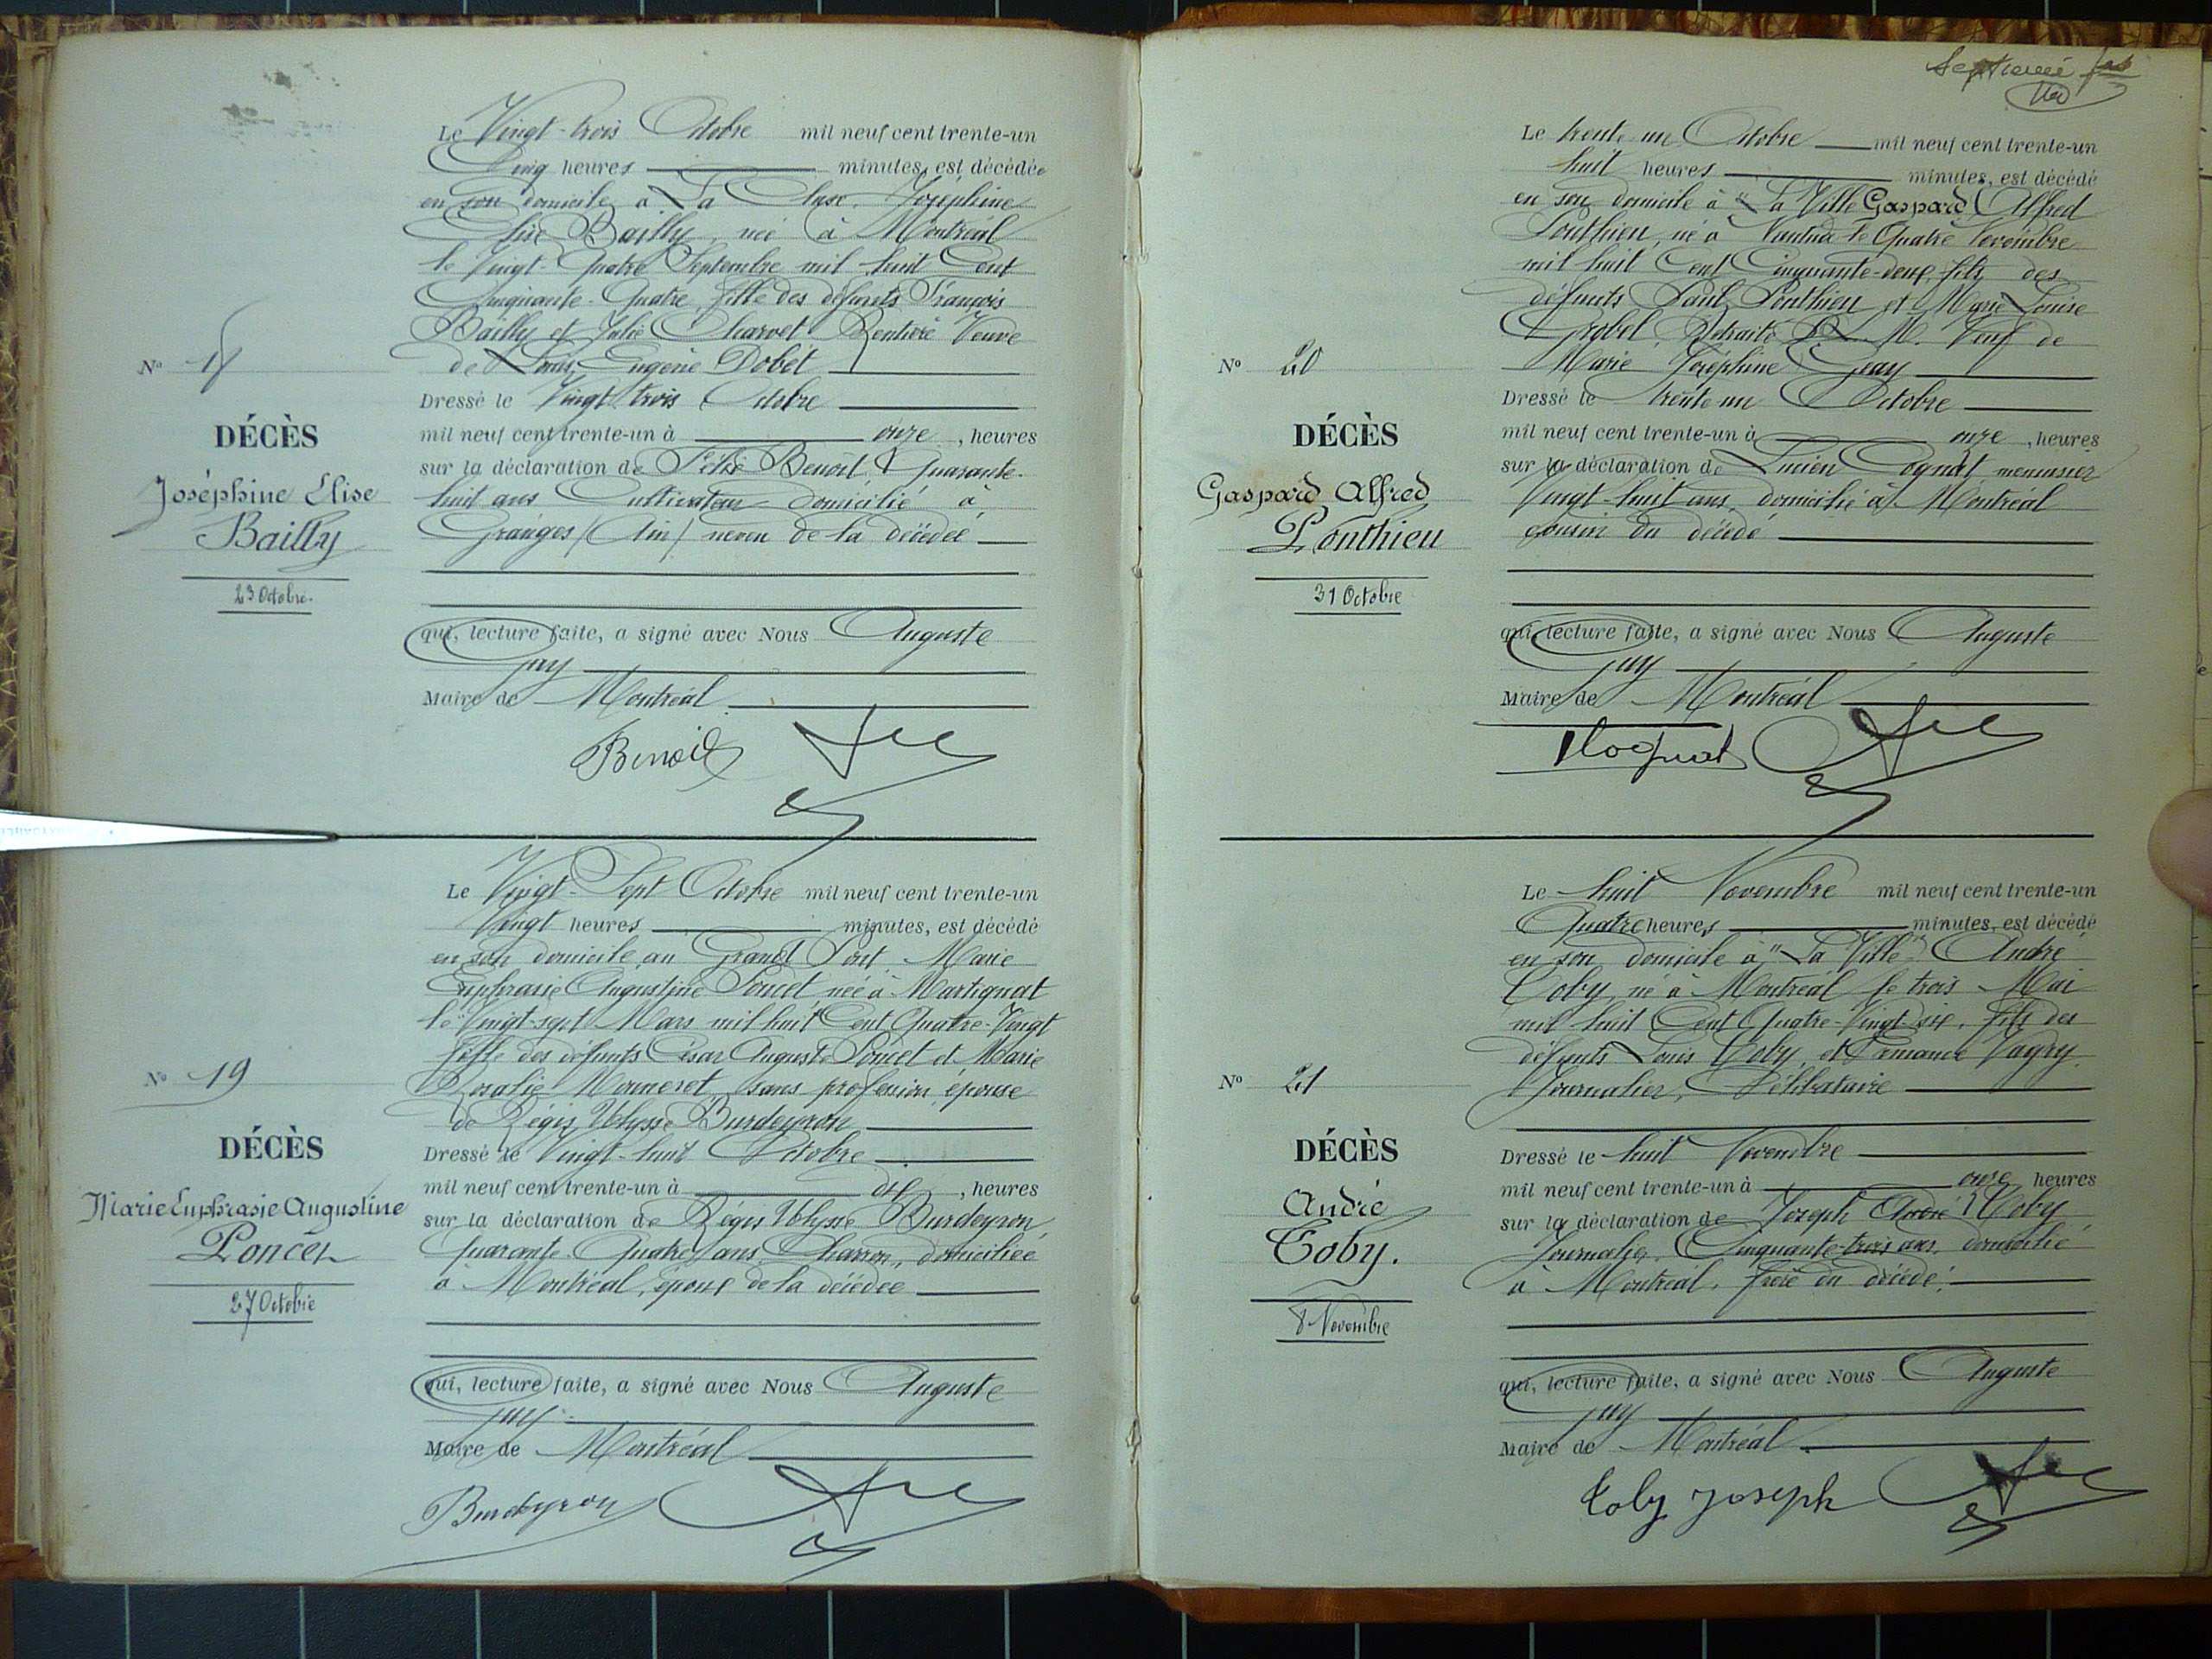 Le Vingt-trois Octobre mil neuf cent trente-un
Cinq heures minutes, est décédée
en son domicile à La Cluse, Joséphine
Elise Bailly, née à Montréal
le Vingt-Quatre Septembre mil huit Cent
Cinquante-Quatre fille des défunts François
Bailly et Julie Charvet Rentière Veuve
de Louis Eugène Dobet
N° 18
Dressé le Vingt trois Octobre
DÉCÈS
mil neuf cent trente-un à onze, heures
sur la déclaration de Félix Benoit, Quarante-
Joséphine Elise
huit ans Cultivateur domicilié à
Bailly
Granges (Ain) neveu de la décédée
23 Octobre.
qui, lecture faite, a signé avec Nous Auguste
Guy
Maire de Montréal
Benoit
Le Vingt-Sept Octobre mil neuf cent trente-un
Vingt heures minutes, est décédé
en son domicile au Grand Pont Marie
Euphrasie Augustine Poncet née à Martignat
le Vingt-sept Mars mil huit Cent Quatre-Vingt
fille des défunts César Auguste Poncet et Marie
N° 19
Rosalie Monneret, sans profession, épouse
de Régis Ulysse Burdeyron
DÉCÈS
Dressé le Vingt-huit Octobre
mil neuf cent trente-un à dix, heures
Marie Euphrasie Augustine
sur la déclaration de Régis Ulysse Burdeyron,
Poncet
Quarante-Quatre ans, Charron, domiciliée
à Montréal, époux de la décédée
27 Octobre
qui, lecture faite, a signé avec Nous Auguste
Guy
Maire de Montréal
Burdeyron
Le trente un Octobre mil neuf cent trente-un
huit heures minutes, est décédé
en son domicile à "La Ville Gaspard Alfred
Ponthieu, né à le Quatre Novembre
mil huit Cent Cinquante-deux, fils des
défunts Paul Ponthieu et Marie Louise
Grobel, Retraité P. L. M. Veuf de
N° 20
Marie Joséphine Geay
Dressé le trente un Octobre
DÉCÈS
mil neuf cent trente-un à onze, heures
sur la déclaration de Lucien Cognat menuisier
Gaspard Alfred
Vingt-huit ans, domicilié à Montréal
Ponthieu
cousin du décédé
31 Octobre
qui, lecture faite, a signé avec Nous Auguste
Guy
Maire de Montréal
Cognat
Le huit Novembre mil neuf cent trente-un
Quatre heures minutes, est décédé
en son domicile à "La Ville" André
Toby, né à Montréal le trois Mai
mil huit Cent Quatre-Vingt six, fils des
défunts Louis Toby, et Ermance Vagry.
N° 21
Journalier, Célibataire
DÉCÈS
Dressé le huit Novembre
mil neuf cent trente-un à onze heures
André
sur la déclaration de Joseph André Toby
Toby.
Journalier, Cinquante-trois ans, domicilié
à Montréal, frère du décédé.
8 Novembre
qui, lecture faite, a signé avec Nous Auguste
Guy
Maire de Montréal.
Toby Joseph